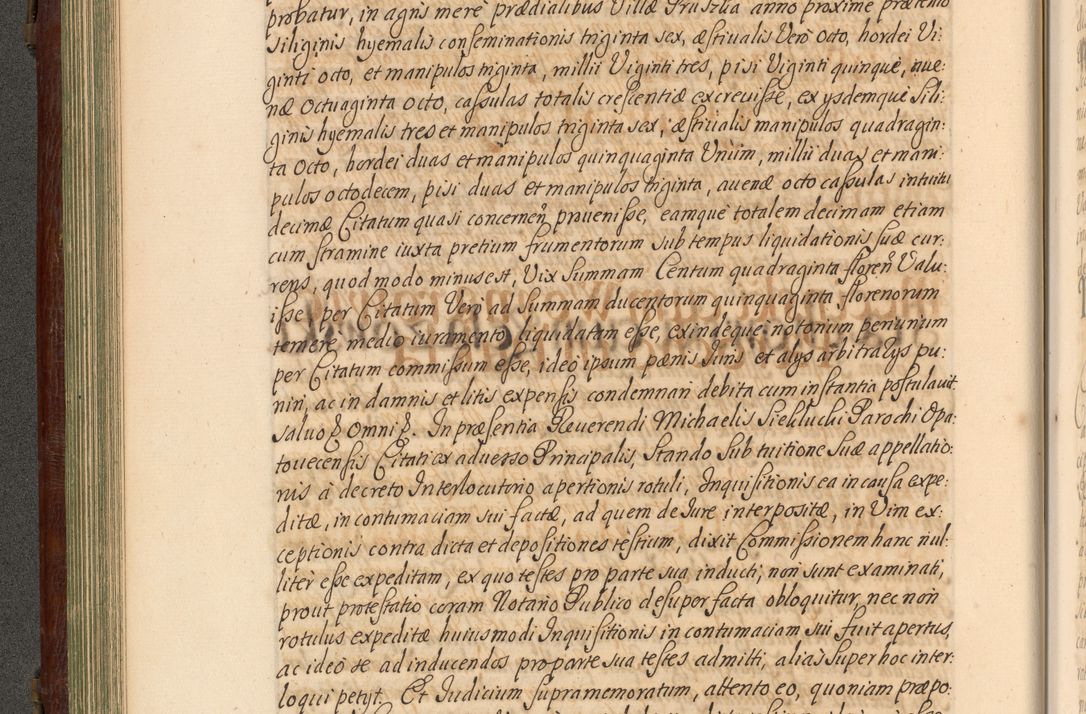 probatur, in agris merè prædialibus Villæ Gruszka anno proxime præterito
siliginis hyemalis conseminationis triginta sex, æstivalis Verò octo, hordei Vi:
ginti octo, et manipulos triginta, millii Viginti tres, pisi Viginti quinquè, aue:
næ octuaginta octo, cassulas totalis crescentiæ excrevisse, ex ysdemquè Sili:
ginis hyemalis tres et manipulos triginta sex, æstivalis manipulos quadragin:
ta octo, hordei duas et manipulos quinquaginta Unum, millii duas et mani:
pulos octodecem, pisi duas et manipulos triginta, auenæ octo cassulas intuitu
decimæ Citatum quasi concernen̄ prouenisse, eamquè totalem decimam etiam
cum stramine iuxta pretium frumentorum sub tempus liquidationis suæ cur:
rens, quod modo minus est, Vix Summam Centum quadraginta floren̄ Valu:
isse, per Citatum Verò ad Summam ducentorum quinquaginta florenorum
temerè, medio iuramento, liquidatam esse, exindequè notorium periurium
per Citatum commissum esse, ideò ipsum pænis Iuris et alys arbitralys pu:
niri, ac in damnis et litis expensis condemnari debita cum instantia postulauit
salvo ꝑ Omni ꝑ. In præsentia Reuerendi Michaelis Siekluchi Parochi Opa:
touecensis Citati ex aduerso Principalis, Stando Sub tuitione Suæ appellatio:
nis à decreto Interlocutorio apertionis rotuli, Inquisitionis ea in causa expe:
ditæ, in contumaciam sui factæ, ad quem de Iure interpositæ, in Vim ex:
ceptionis contra dicta et depositiones testium, dixit Commissionem hanc nul:
liter esse expeditam, ex quo testes pro parte sua inducti, non sunt examinati,
prout protestatio coram Notario Publico desuper facta obloquitur, nec non
rotulus expeditæ huiusmodi Inquisitionis in contumaciam sui fuit apertus,
ac ideò se ad inducendos pro parte sua testes admitti, alias super hoc inter:
loqui petyt. Et Iudicium supra memoratum, attento eo, quoniam præpo: